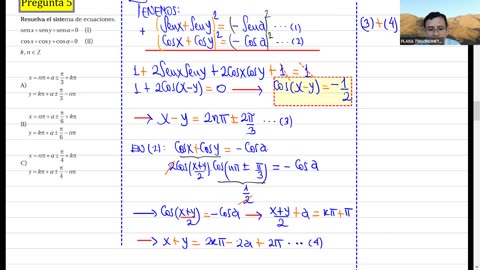 Pregunta 5
Resuelva el sistema de ecuaciones.
senx+seny+senα=0 (I)
cosx+cosy+cosα=0 (II)
k, n ∈ Z
A) x = nπ + α ± π/3 + kπ
y = kπ + α ± π/3 − nπ
B) x = nπ + α ± π/6 + kπ
y = kπ + α ± π/6 − nπ
C) x = nπ + α ± π/4 + kπ
y = kπ + α ± π/4 − nπ
TENEMOS:
+ (Senx+Seny)² = (−Sena)² ... (1)
(Cosx+Cosy)² = (−Cosa)² ... (2)
1 + 2SenxSeny + 2CosxCosy + 1 = 1
1 + 2Cos(x−y) = 0 → Cos(x−y) = −1/2
→ x−y = 2nπ ± 2π/3 ... (3)
EN (2): Cosx+Cosy = −Cosa
2Cos(x+y/2)Cos(nπ ± π/3) = −Cosa
1/2
→ Cos(x+y/2) = −Cosa → x+y/2 + a = kπ+π
→ x+y = 2kπ − 2a + 2π ... (4)
(3)+(4)